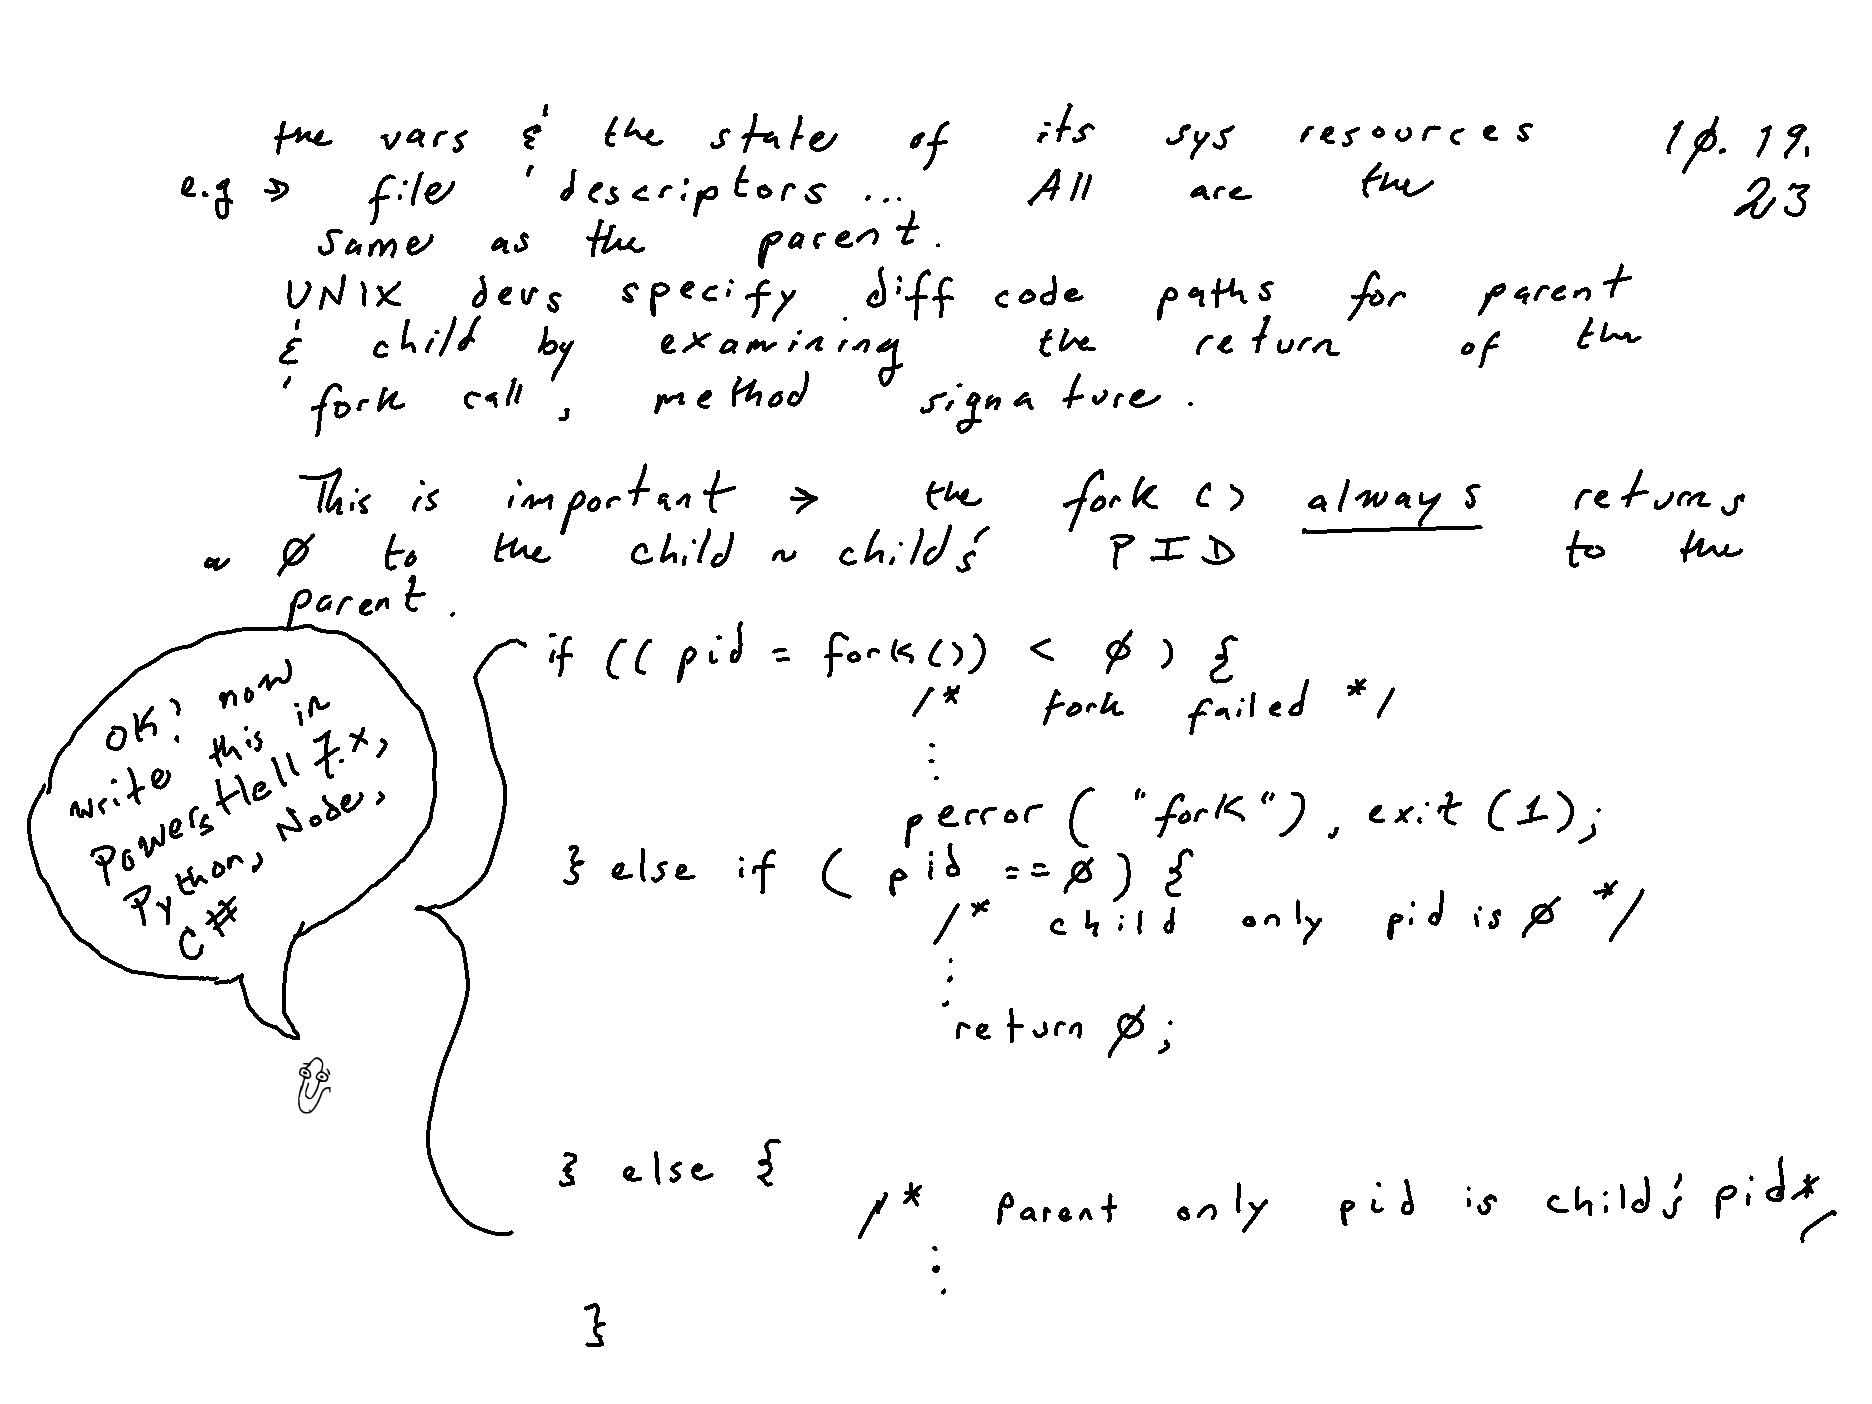 the vars & the state of its sys resources 10.19.
e.g → file descriptors ... All are the 23
same as the parent.
UNIX devs specify diff code paths for parent
& child by examining the return of the
fork call, method signature.
This is important → the fork () always returns
~ 0 to the child ~ child's PID to the
parent.
if (( pid = fork()) < 0 ) {
/* fork failed */
⋮
perror ( "fork"), exit (1);
} else if ( pid == 0 ) {
/* child only pid is 0 */
⋮
return 0;
} else {
/* Parent only pid is child's pid*/
⋮
}
OK? now
write this in
PowersHell 7.x,
Python, Node,
C#